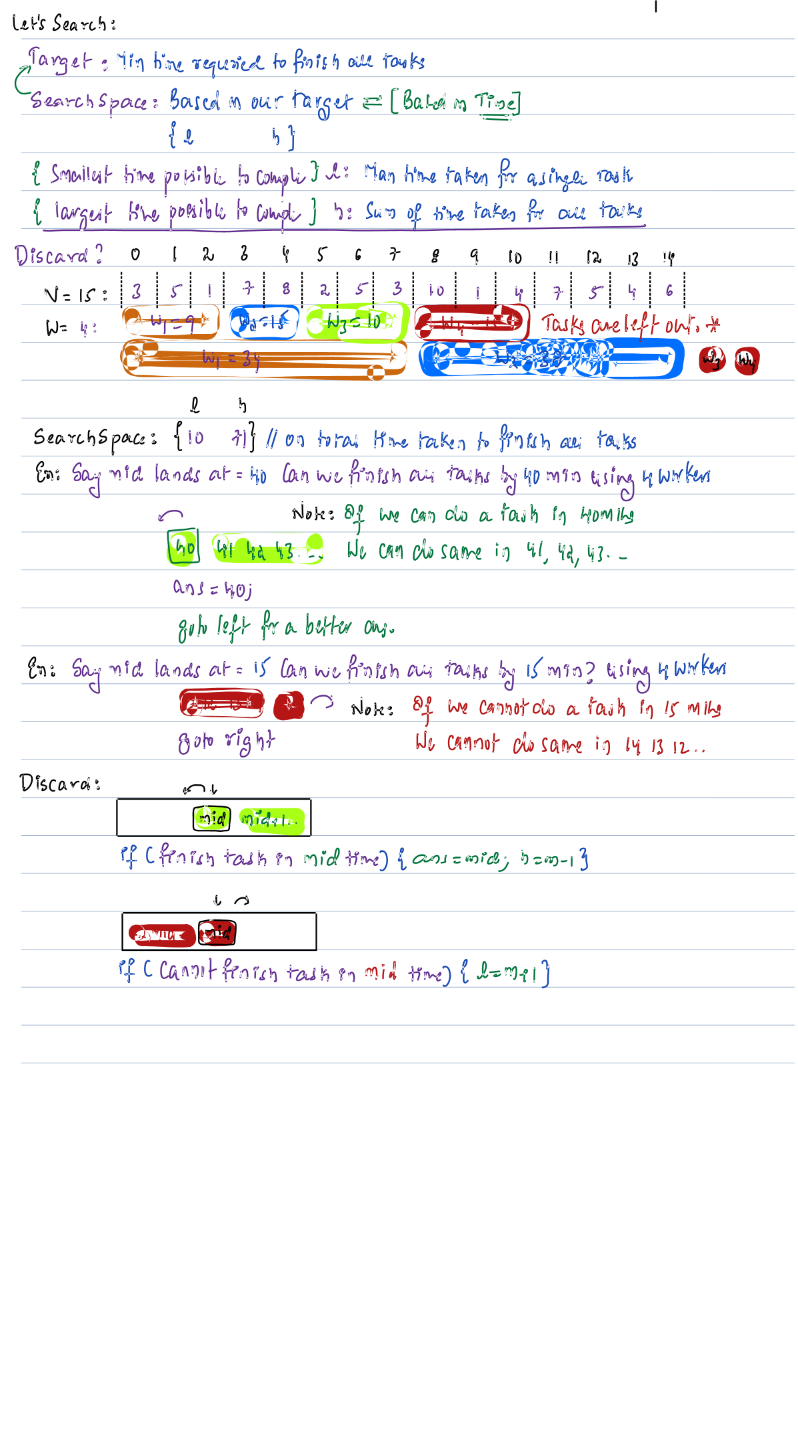 Let's Search:
Target: Min time required to finish all tasks
SearchSpace: Based on our Target ⇌ [Based on Time]
{ l h }
{ Smallest time possible to comple } l: Max time taken for a single task
{ largest time possible to compl } h: Sum of time taken for all tasks
Discard? 0 1 2 3 4 5 6 7 8 9 10 11 12 13 14
N=15: 3 5 1 7 8 2 5 3 10 1 4 7 5 4 6
W= 4: W₁=9 W₂=15 W₃=10 W₄ Tasks are left out. *
W₁=34 W₃ W₄
l h
SearchSpace: {10 71} // on total time taken to finish all tasks
Ex: Say mid lands at = 40 Can we finish all tasks by 40 min using 4 workers
Note: If we can do a task in 40mins
40 41 42 43... We can do same in 41, 42, 43..
ans=40;
goto left for a better ans.
Ex: Say mid lands at = 15 Can we finish all tasks by 15 min? using 4 workers
Note: If we cannot do a task in 15 mins
goto right We cannot do same in 14 13 12..
Discard:
mid mid+1..
if (finish task in mid time) { ans=mid; h=m-1 }
mid
if (Cannot finish task in mid time) { l=m+1 }